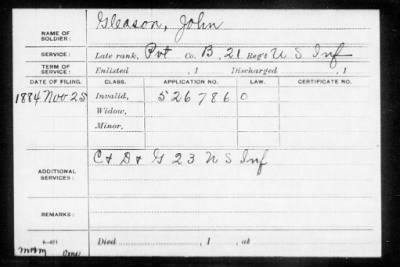 NAME OF SOLDIER: Gleason, John
SERVICE: Late rank, Pvt Co. B, 21 Reg't U S Inf
TERM OF SERVICE: Enlisted , 1 Discharged , 1
DATE OF FILING. CLASS. APPLICATION NO. LAW. CERTIFICATE NO.
1884 Nov 25 Invalid, 526786 0
Widow,
Minor,
ADDITIONAL SERVICES: C & D & G 23 U S Inf
REMARKS:
Died , 1 , at